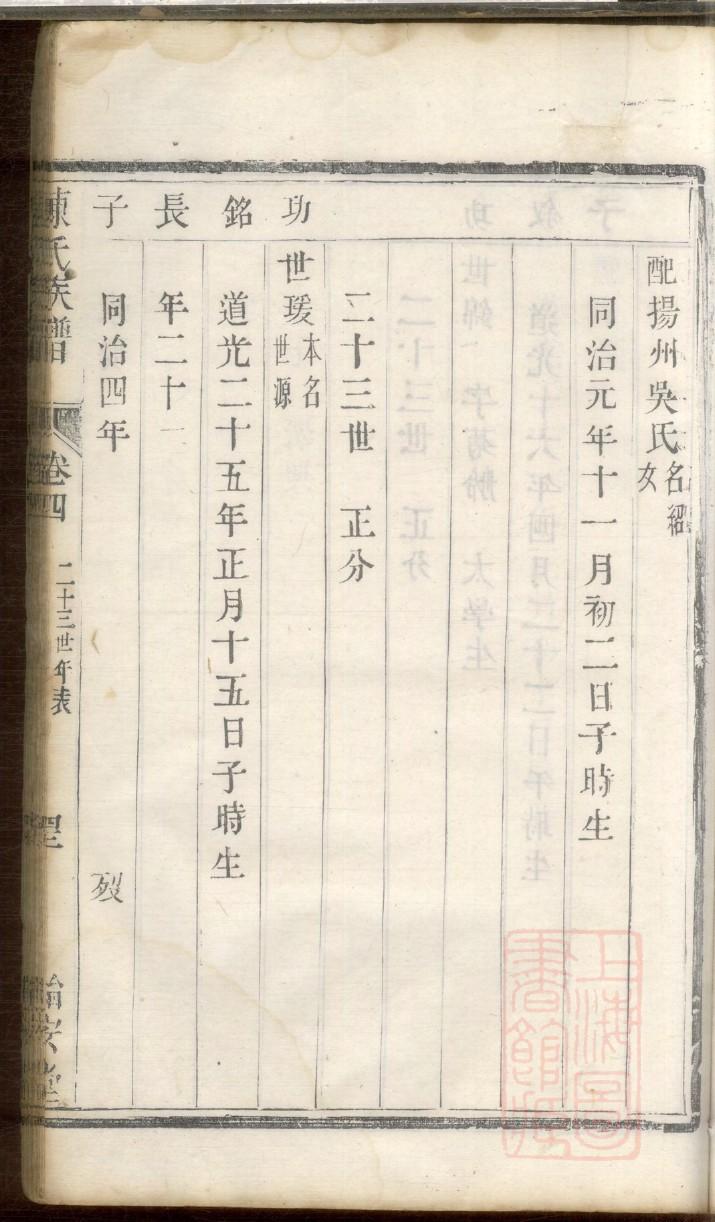 配揚州吳氏名紹女
同治元年十一月初二日子時生
二十三世 正分
功世瑗本名世源
銘 道光二十五年正月十五日子時生
長 年二十一
子 同治四年 列
陳氏族譜 卷四 二十三世年表
上海圖書館藏